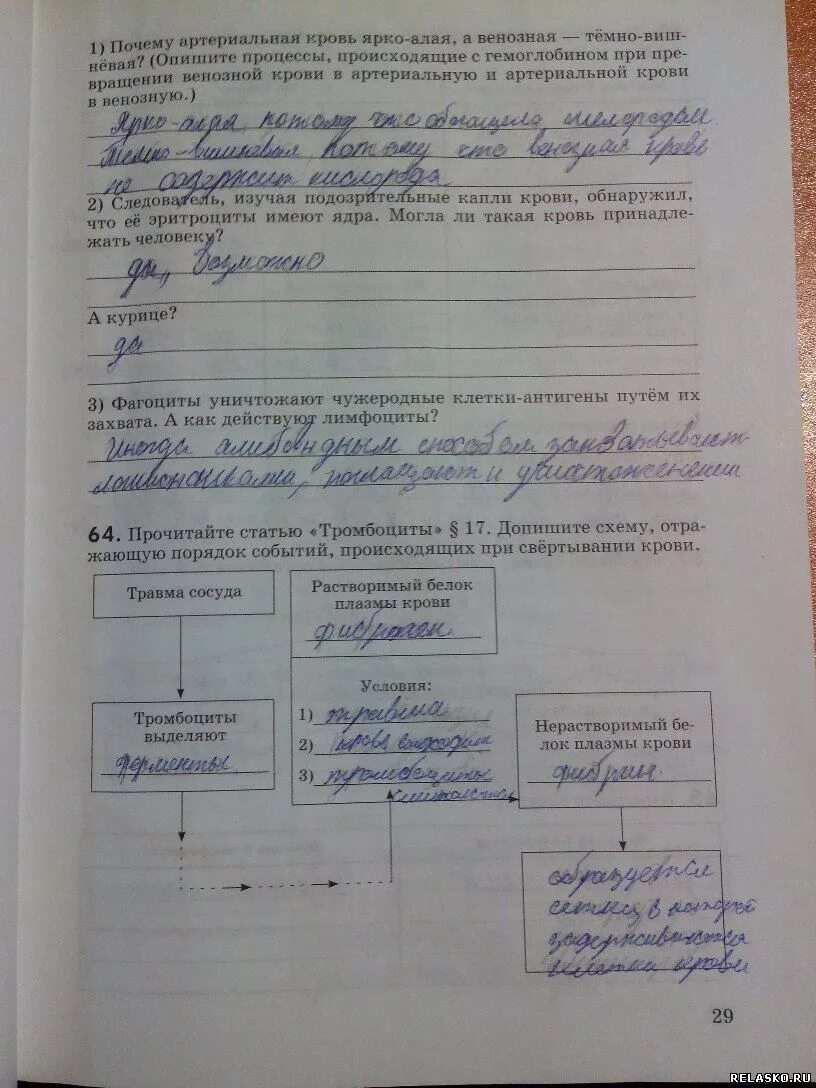 1) Почему артериальная кровь ярко-алая, а венозная — тёмно-виш-
нёвая? (Опишите процессы, происходящие с гемоглобином при пре-
вращении венозной крови в артериальную и артериальной крови
в венозную.)
Ярко-алая, потому что
Темно-вишневая, потому что венозная кровь
не содержит кислорода
2) Следователь, изучая подозрительные капли крови, обнаружил,
что её эритроциты имеют ядра. Могла ли такая кровь принадле-
жать человеку?
да, возможно
А курице?
да
3) Фагоциты уничтожают чужеродные клетки-антигены путём их
захвата. А как действуют лимфоциты?
Иногда способом захватывают
поглащают и
64. Прочитайте статью «Тромбоциты» § 17. Допишите схему, отра-
жающую порядок событий, происходящих при свёртывании крови.
Травма сосуда
Растворимый белок
плазмы крови
Условия:
1) травма
2)
3) тромбоциты
Тромбоциты
выделяют
ферменты
Нерастворимый бе-
лок плазмы крови
фибрин
образуется
сетка в которой
задерживаются
клетки крови
29
RELASKO.RU